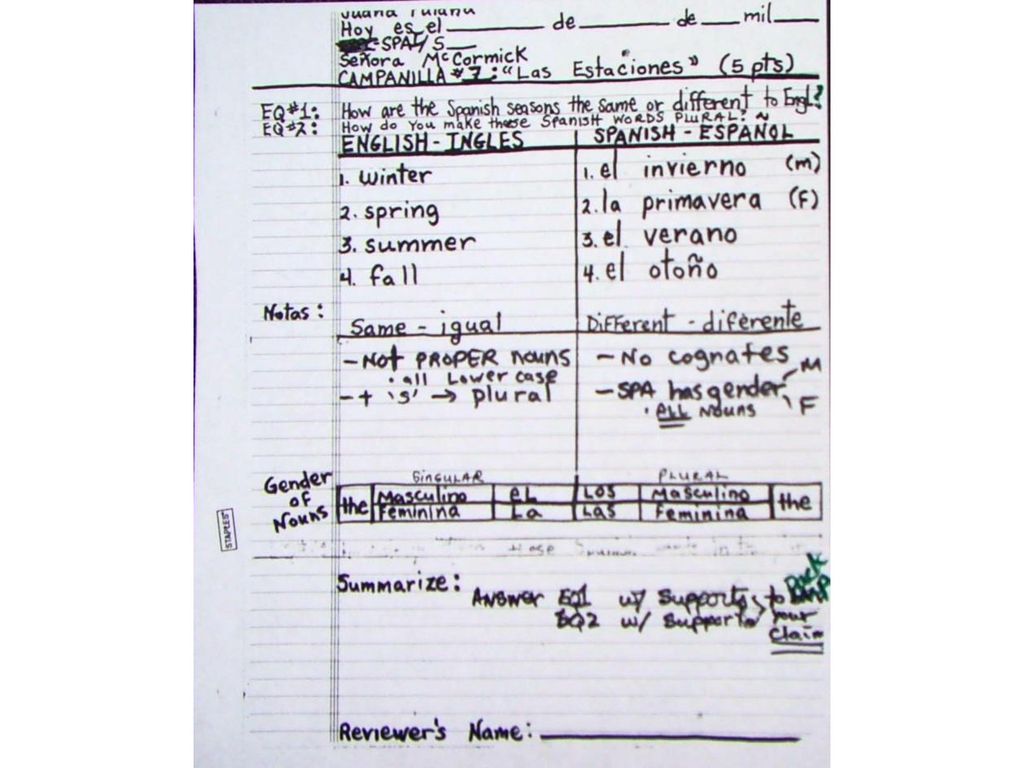 Juana Fulana
Hoy es el ______ de ______ de ___ mil ____
SPA/S___
Señora McCormick
CAMPANILLA #7: "Las Estaciones" (5 pts)
EQ#1: How are the Spanish seasons the same or different to Engl?
EQ#2: How do you make these SPANISH WORDS PLURAL?
ENGLISH - INGLES SPANISH - ESPAÑOL
1. winter 1. el invierno (m)
2. spring 2. la primavera (F)
3. summer 3. el verano
4. fall 4. el otoño
Notas: Same - igual Different - diferente
- Not PROPER nouns - No cognates
• all Lower case - SPA has gender M
- + 's' → plural • ALL NOUNS F
Gender of Nouns
SINGULAR PLURAL
the Masculino EL LOS Masculino the
Feminina La LAS Feminina
STAPLES
Summarize: Answer EQ1 w/ Supports to back up
EQ2 w/ Supports your
Claim
Reviewer's Name: ______